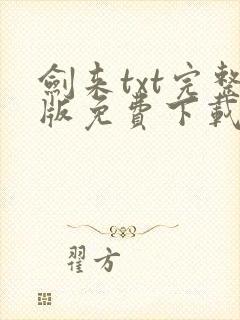 劍来txt完整
版免費下載
翟方